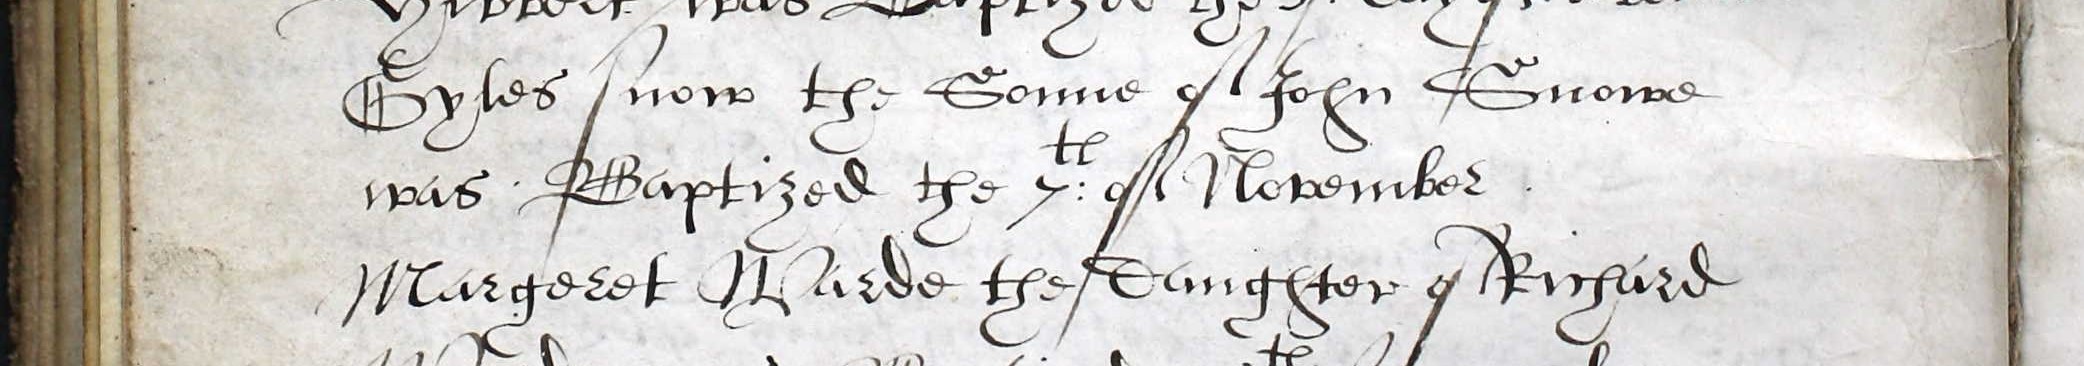 was Baptized the
Gyles snow the Sonne of John Snowe
was Baptized the 7th: of November
Margeret Warde the Daughter of Richard